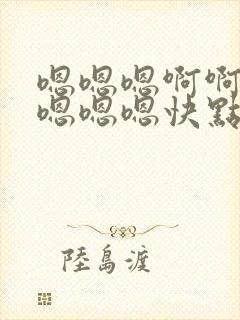 嗯嗯嗯啊啊
嗯嗯嗯快點
陸島渡